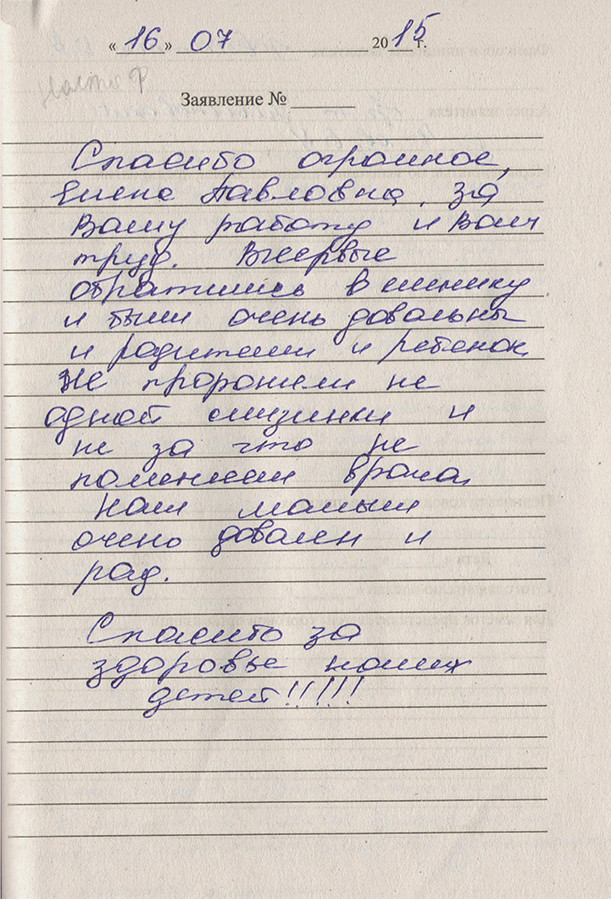 «16» 07 2015 г.
Заявление №
Спасибо огромное,
Елена Павловна, за
Вашу работу и Ваш
труд. Впервые
обратились в клинику
и были очень довольны
и родители и ребенок.
Не проронили не
одной слизинки и
не за что не
поменяем врача.
Наш малыш
очень доволен и
рад.
Спасибо за
здоровье наших
детей!!!!!